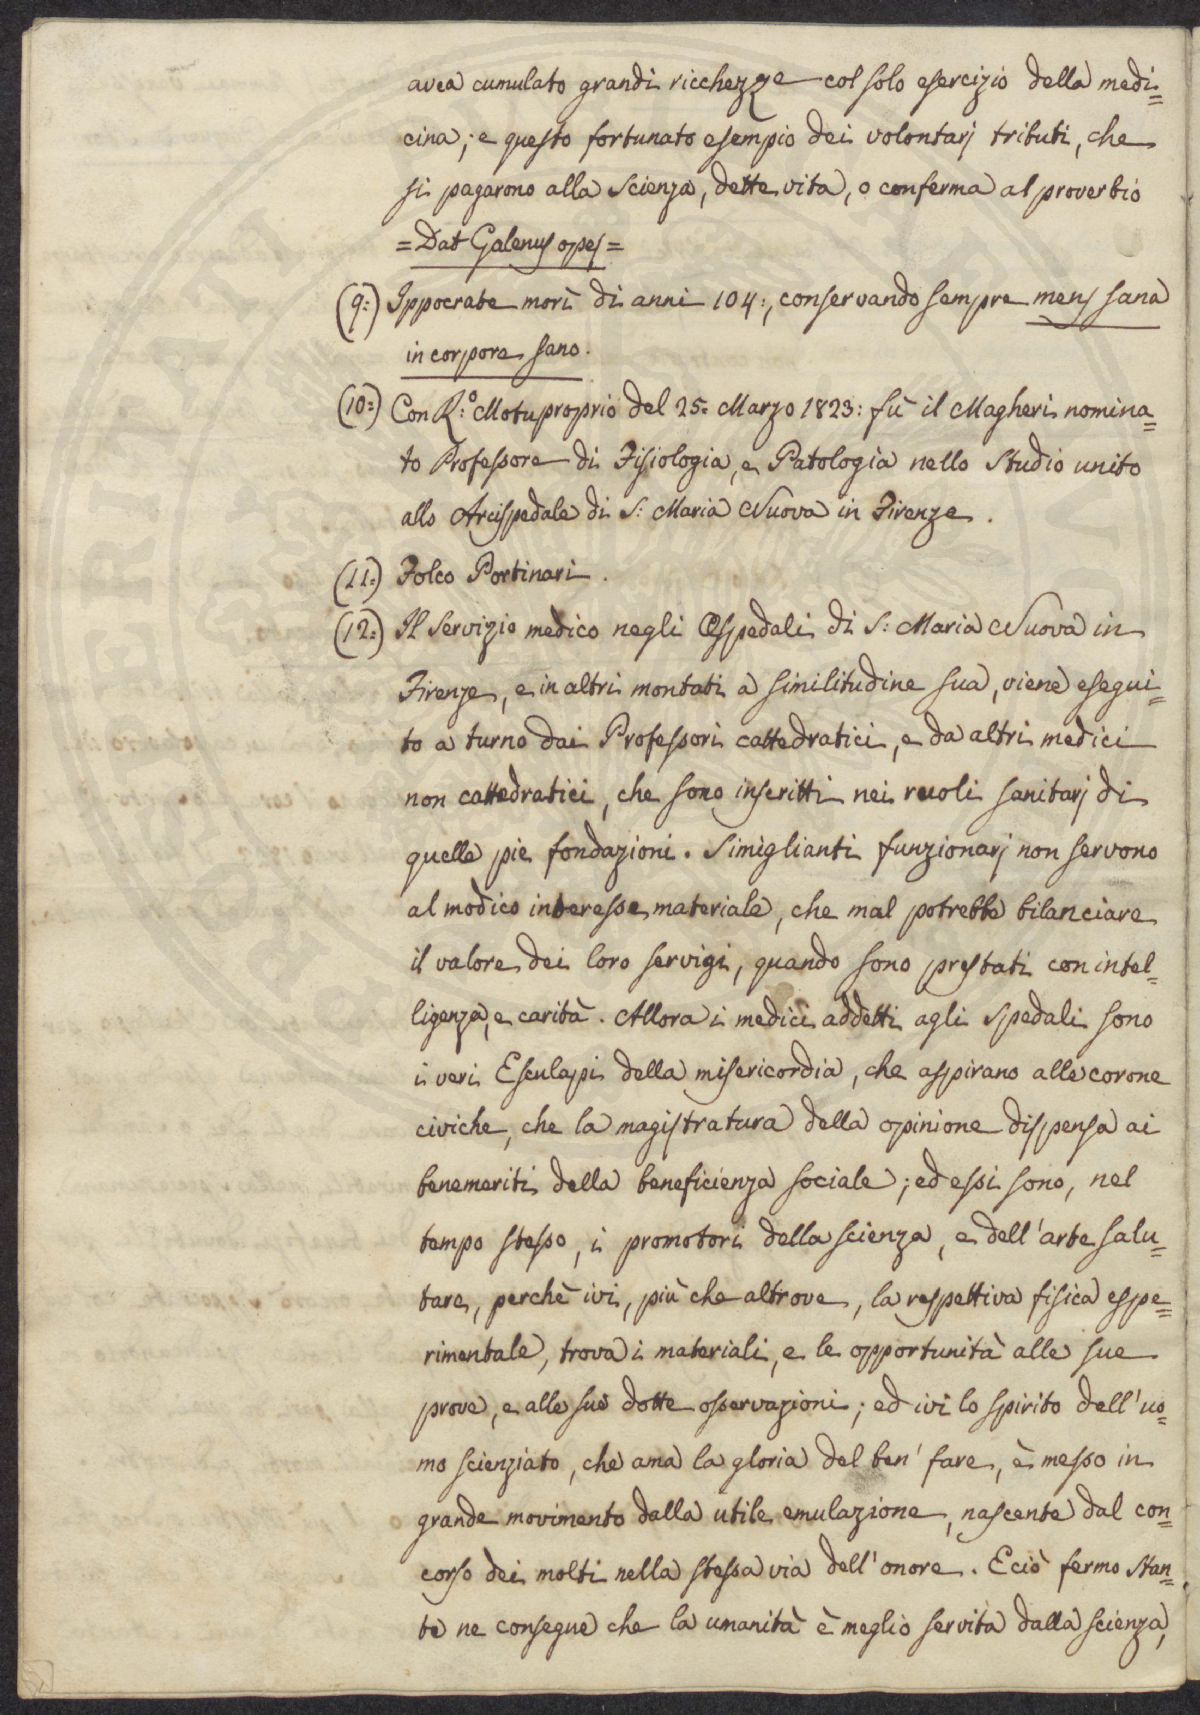 avea cumulato grandi ricchezze col solo esercizio della medi=
cina; e questo fortunato esempio dei volontarj tributi, che
si pagarono alla Scienza, dette vita, o conferma al proverbio
= Dat Galenus opes =
(9:) Ippocrate morì di anni 104:, conservando sempre mens sana
in corpore sano.
(10:) Con R:º Motuproprio del 25: Marzo 1823: fù il Magheri nomina=
to Professore di Fisiologia, e Patologia nello Studio unito
allo Arcispedale di S: Maria Nuova in Firenze.
(11:) Folco Portinari.
(12:) Il servizio medico negli Ospedali di S: Maria Nuova in
Firenze, e in altri montati a similitudine sua, viene esegui=
to a turno dai Professori cattedratici, e da altri medici
non cattedratici, che sono inscritti nei ruoli sanitarj di
quelle pie fondazioni. Simiglianti funzionarj non servono
al modico interesse materiale, che mal potrebbe bilanciare
il valore dei loro servigi, quando sono prestati con intel=
ligenza, e carità. Allora i medici addetti agli Spedali sono
i veri Esculapi della misericordia, che aspirano alle corone
civiche, che la magistratura della opinione dispensa ai
benemeriti della beneficienza sociale; ed essi sono, nel
tempo stesso, i promotori della scienza, e dell'arte salu=
tare, perchè ivi, più che altrove, la respettiva fisica espe=
rimentale, trova i materiali, e le opportunità alle sue
prove, e alle sue dotte osservazioni; ed ivi lo spirito dell'uo=
mo scienziato, che ama la gloria del ben' fare, è messo in
grande movimento dalla utile emulazione, nascente dal con=
corso dei molti nella stessa via dell'onore. E ciò fermo stan=
te ne consegue che la umanità è meglio servita dalla scienza,